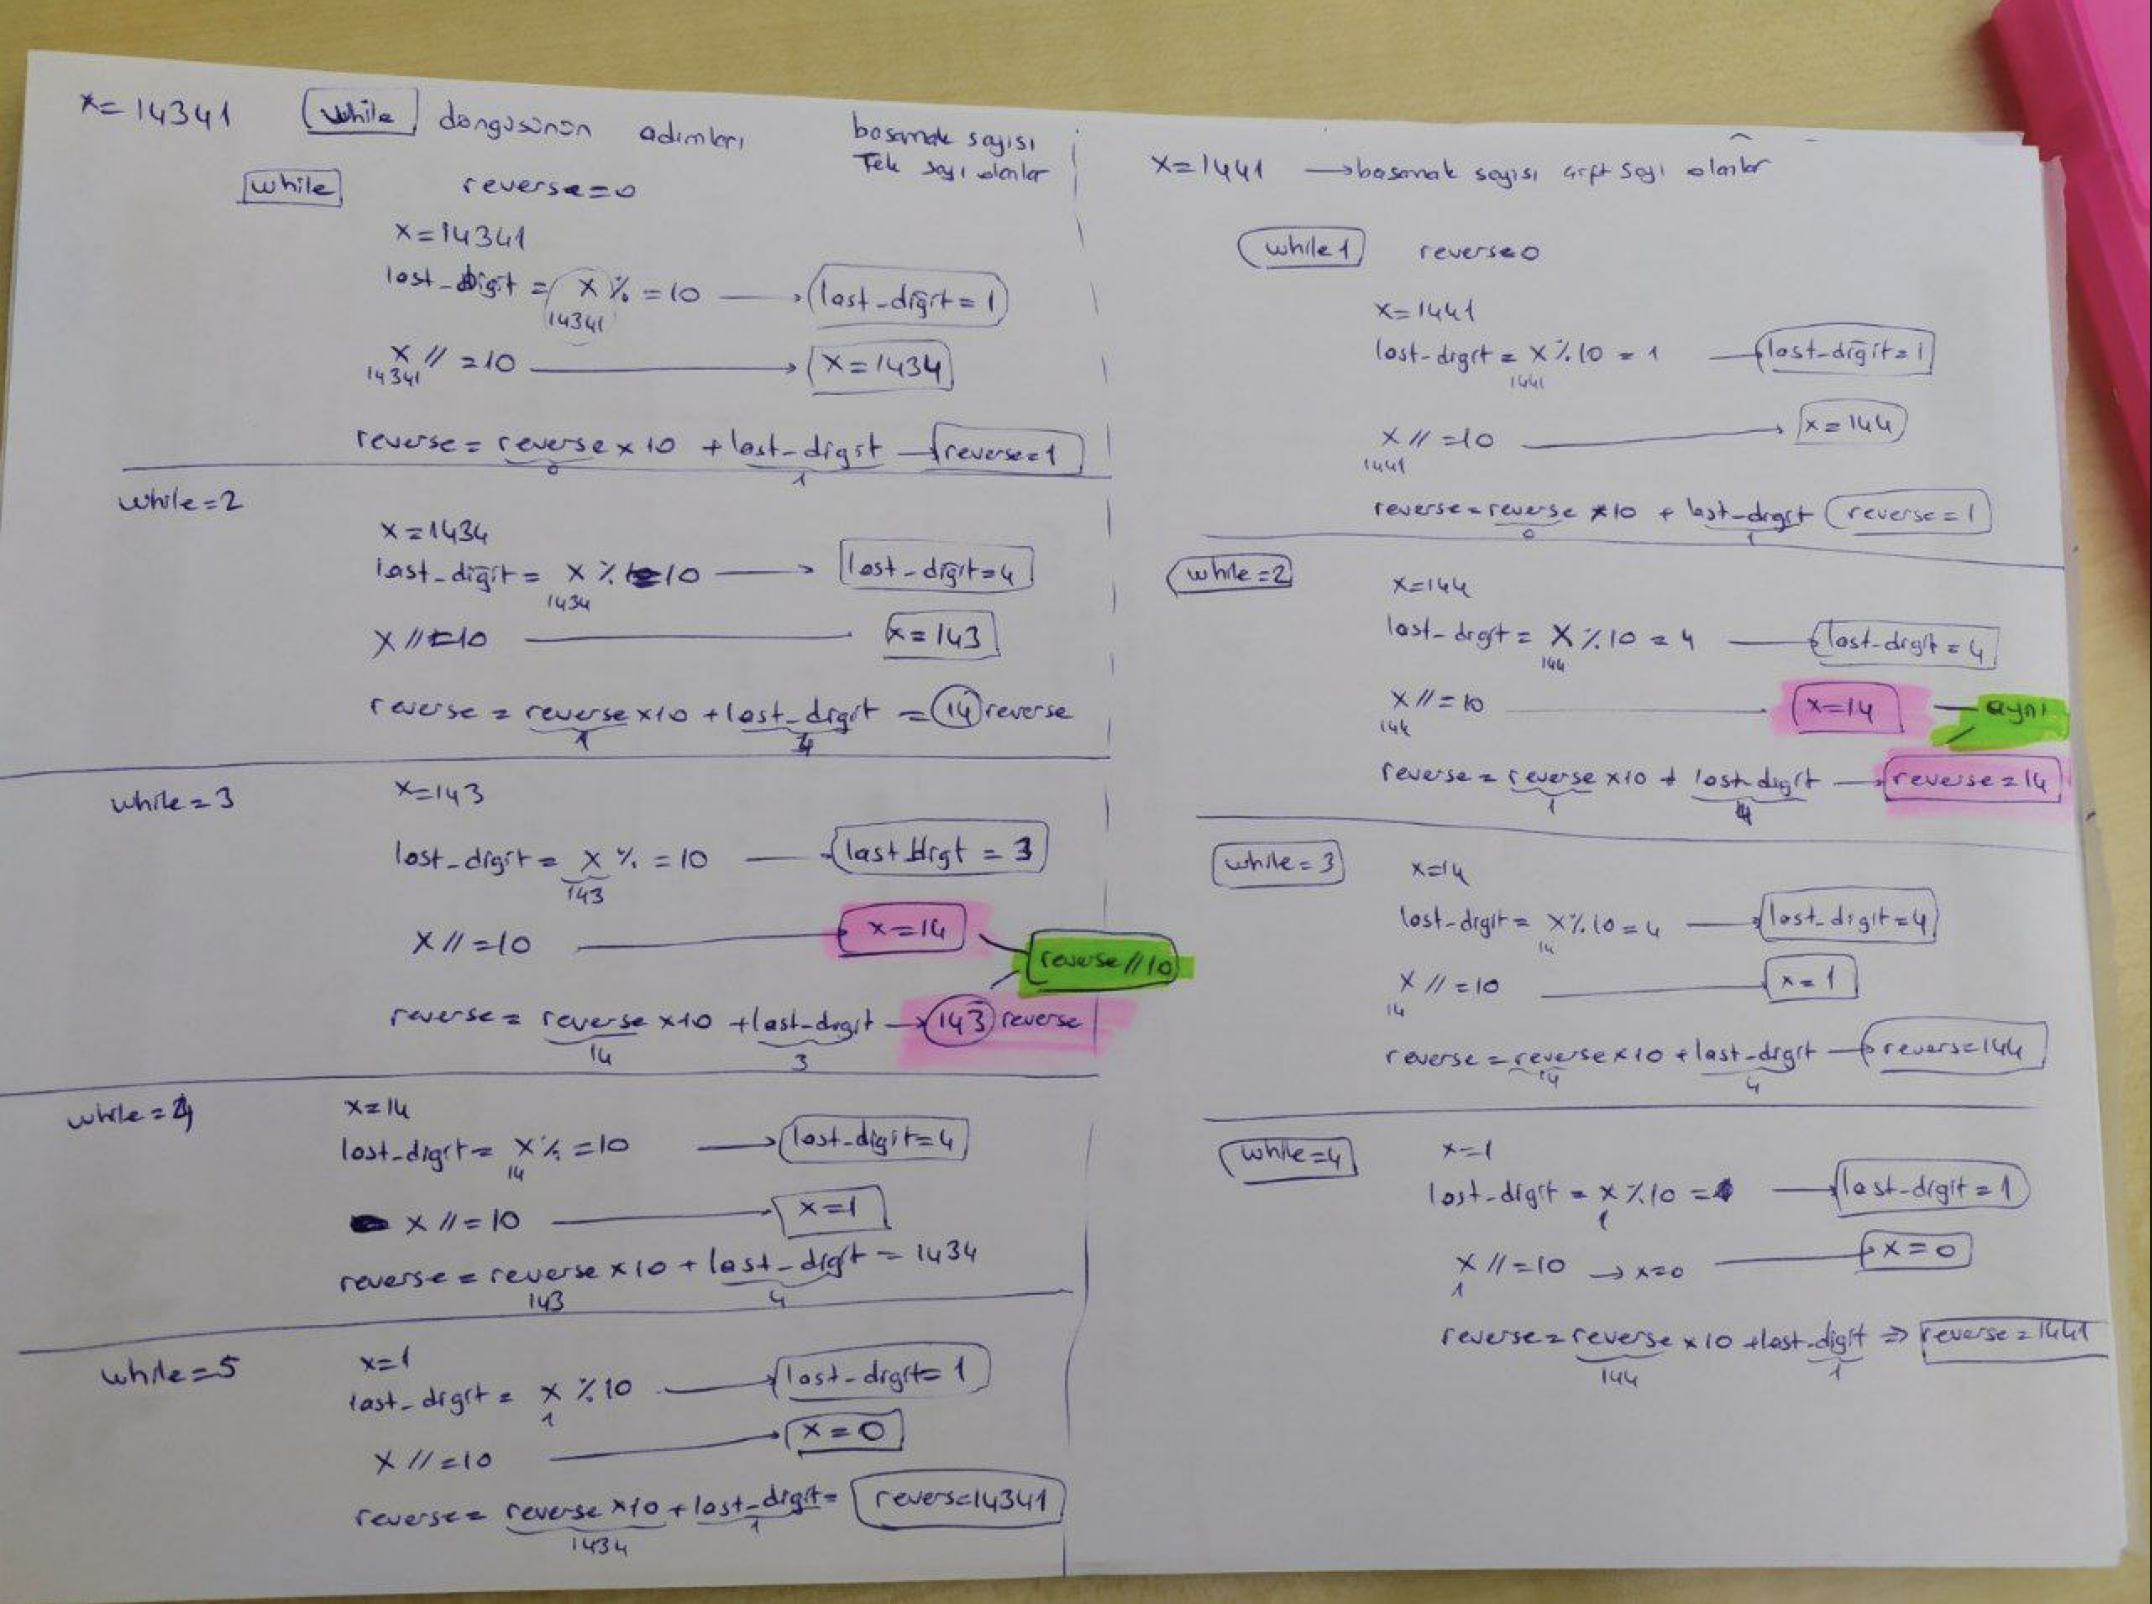 x=14341 while döngüsünün adımları basamak sayısı
Tek sayı olanlar
while reverse=0
x=14341
last_digit = x % =10 → last_digit=1
14341
x // =10 → x=1434
14341
reverse = reverse x 10 + last_digit → reverse=1
0 1
while=2
x=1434
last_digit = x % 10 → last_digit=4
1434
x //=10 x=143
reverse = reverse x10 + last_digit = 14 reverse
1 4
while=3
x=143
last_digit = x % =10 last digt = 3
143
x // =10 x=14
reverse//10
reverse = reverse x10 + last_digit → 143 reverse
14 3
while=4
x=14
last_digit = x % =10 → last_digit=4
14
x // =10 x=1
reverse = reverse x10 + last_digit = 1434
143 4
while=5
x=1
last_digit = x %10 → last_digit=1
1
x // =10 → x=0
reverse = reverse x10 + last_digit = reverse=14341
1434 1
x=1441 → basamak sayısı çift sayı olanlar
while1 reverse=0
x=1441
last-digit = x%10 = 1 last-digit=1
1441
x // =10 → x=144
1441
reverse = reverse x10 + last-digit reverse=1
0 1
while=2
x=144
last-digit = x%10 = 4 last-digit=4
144
x // =10 x=14 aynı
144
reverse = reverse x10 + last digit → reverse=14
1 4
while=3
x=14
last-digit = x%10=4 → last_digit=4
14
x // =10 x=1
14
reverse = reverse x10 + last-digit → reverse=144
14 4
while=4
x=1
last-digit = x %10 = → last-digit=1
1
x // =10 → x=0 x=0
1
reverse = reverse x10 + last-digit ⇒ reverse=1441
144 1